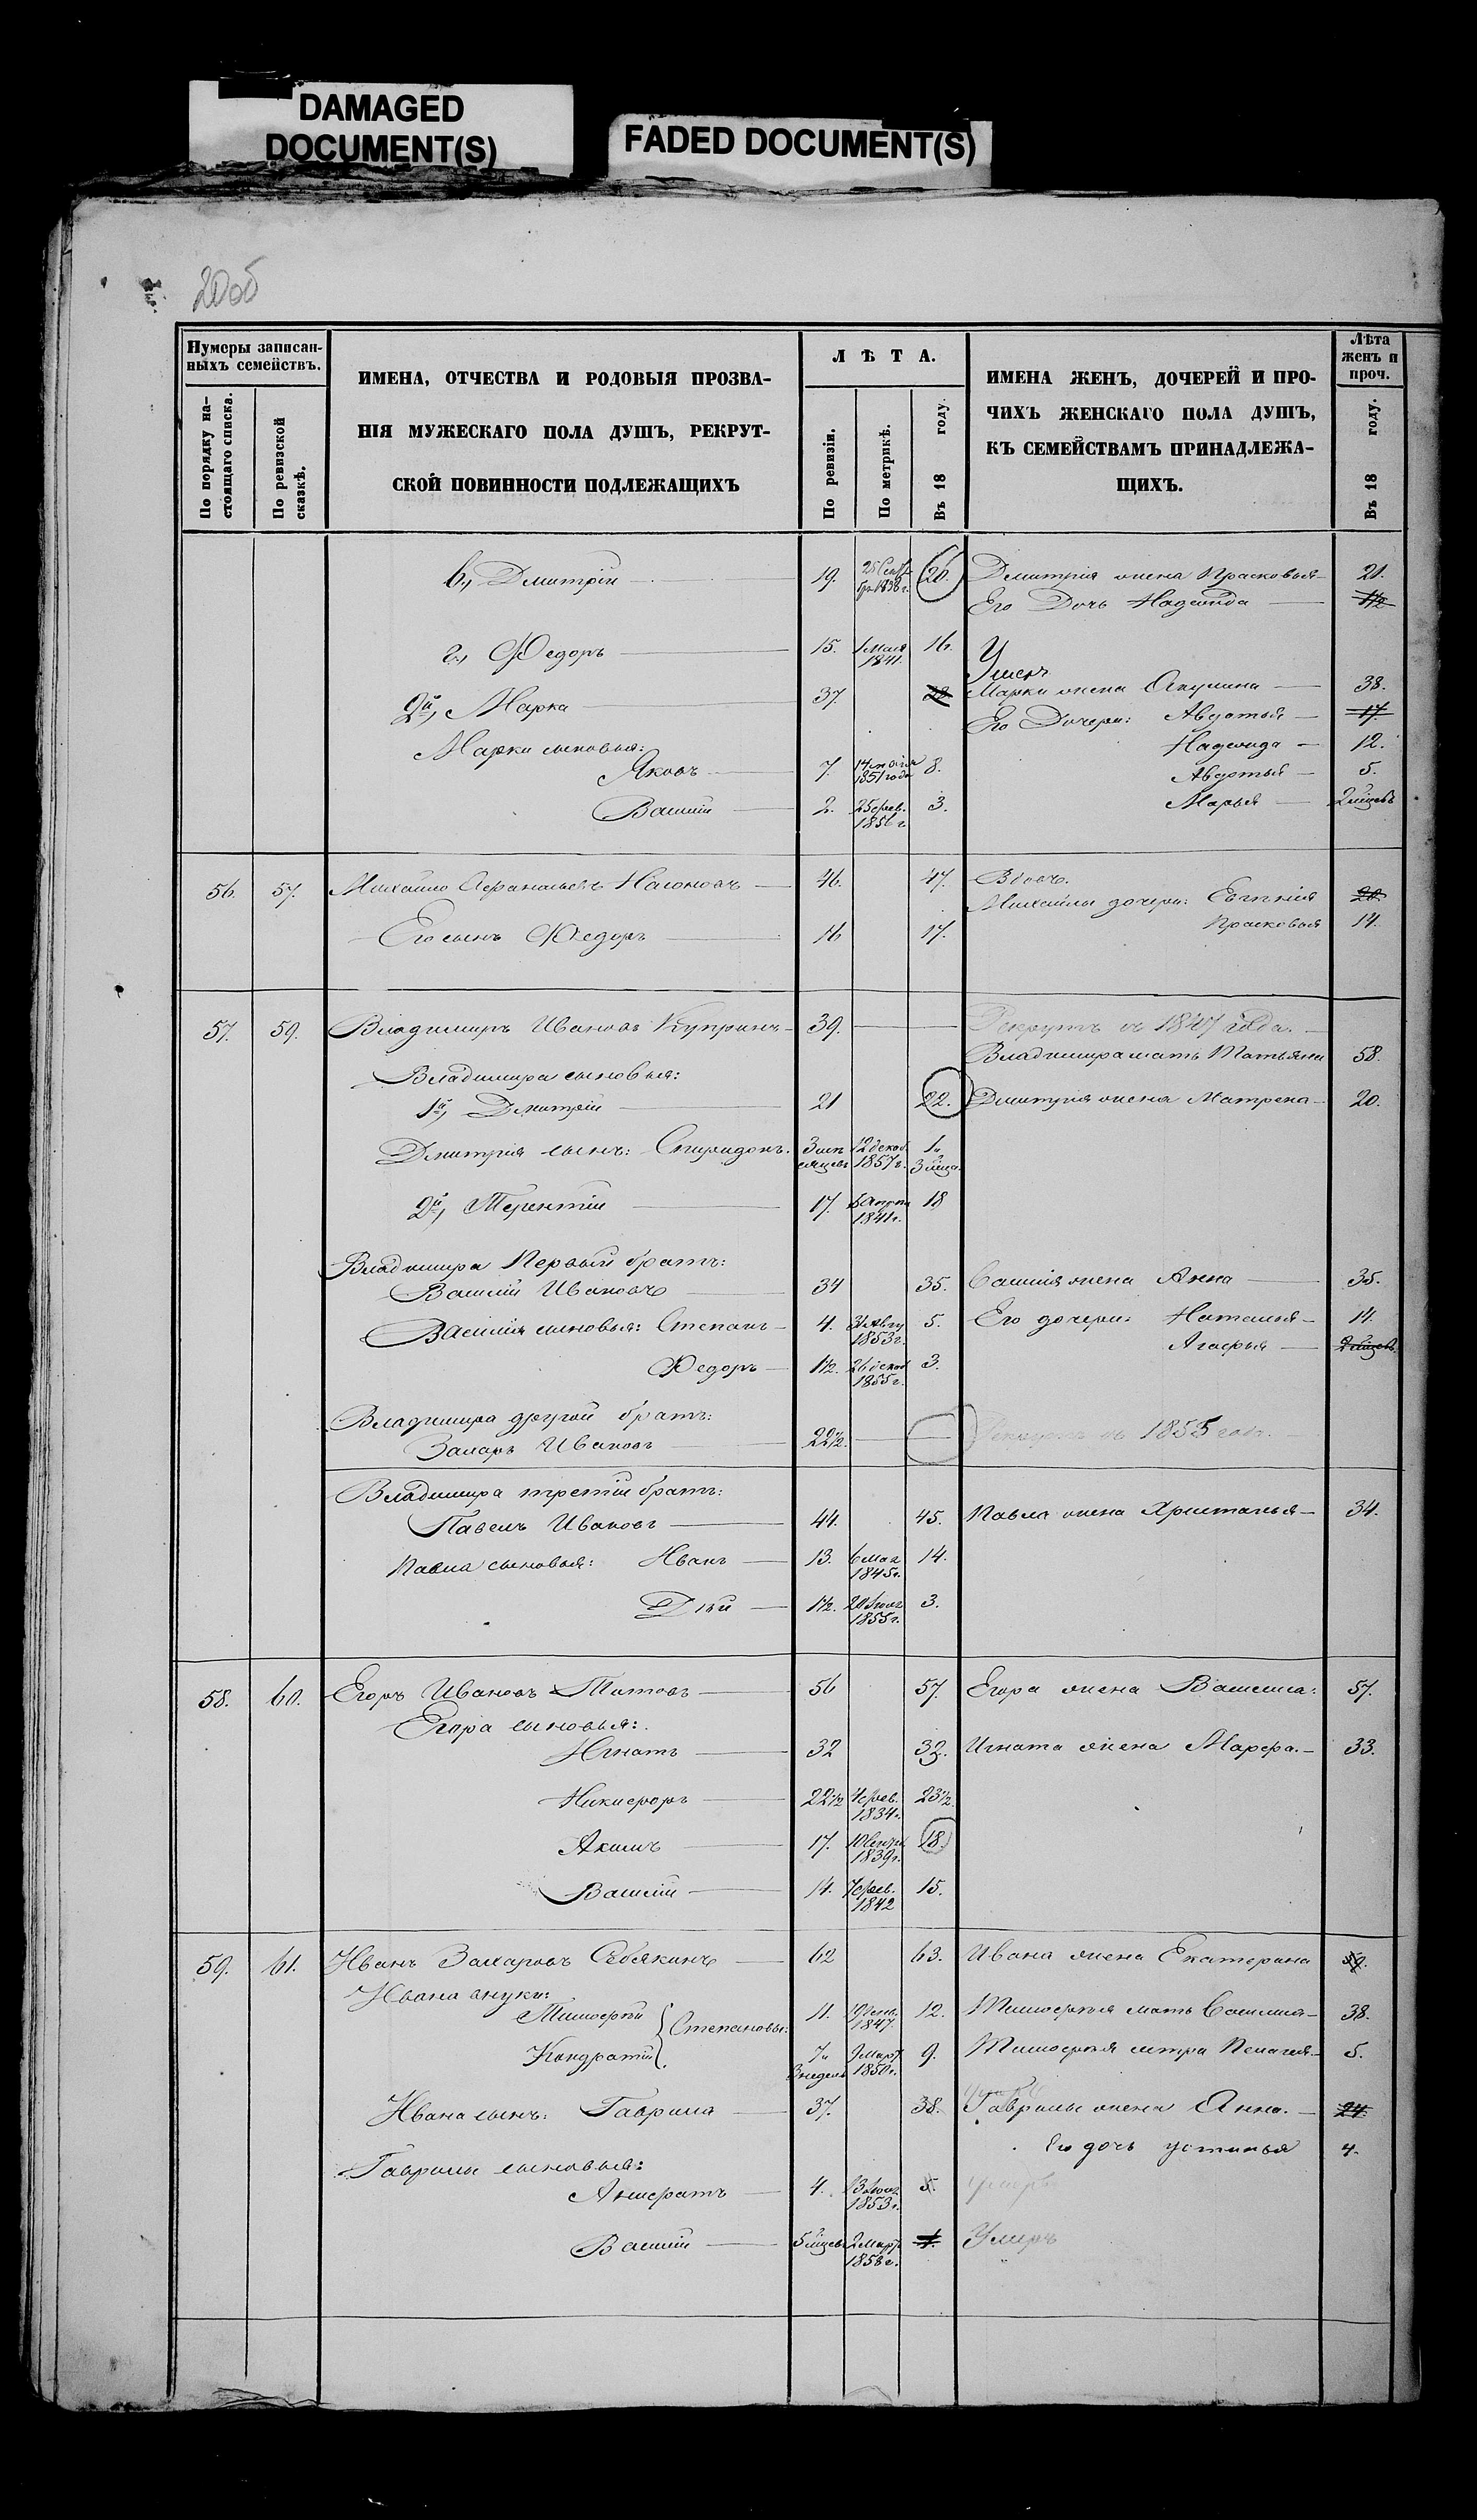 DAMAGED
DOCUMENT(S)
FADED DOCUMENT(S)
20об
Нумеры записан-
ныхъ семействъ.
По порядку на-
стоящаго списка.
По ревизской
сказкѣ.
ИМЕНА, ОТЧЕСТВА И РОДОВЫЯ ПРОЗВА-
НІЯ МУЖЕСКАГО ПОЛА ДУШЪ, РЕКРУТ-
СКОЙ ПОВИННОСТИ ПОДЛЕЖАЩИХЪ
ЛѢТА.
По ревизіи.
По метрикѣ.
Въ 18 году.
ИМЕНА ЖЕНЪ, ДОЧЕРЕЙ И ПРО-
ЧИХЪ ЖЕНСКАГО ПОЛА ДУШЪ,
КЪ СЕМЕЙСТВАМЪ ПРИНАДЛЕЖА-
ЩИХЪ.
Лѣта
женъ и
проч.
Въ 18 году.
в., Дмитрій 19. 25 Сентя бря 1838 г. 20. Дмитрія жена Прасковья 21.
Его Дочь Надежда 1 1/2
г., Ѳедоръ 15. 1 Мая 1841. 16.
Умеръ
2й, Марка 37. Марки жена Акулина 38.
Его Дочери: Авдотья 17.
Марки сыновья: Надежда 12.
Яковъ 7. 1851 года 8. Авдотья 5.
Василій 2. 25 фев. 1856 г. 3. Марья 2 мѣсецъ
56. 57. Михайло Афанасьевъ 46. 47. Вдовъ.
Михайлы дочери: Евгенія 20.
Его сынъ Ѳедоръ 16 17. Прасковья 14.
57. 59. Владимиръ Ивановъ Купринъ 39. Рекрутъ съ 1847 года.
Владимира мать Татьяна 58.
Владимира сыновья:
1й, Дмитрій 21 22. Дмитрія жена Матрена 20.
Дмитрія сынъ: Спиридонъ. 3 мѣ сяцевъ 12 декаб. 1857 г. 1 3 мѣся.
2й, Терентій 17. 1841 г. 18
Владимира Первый братъ:
Василій Ивановъ 34 35. Василія жена Анна 35.
Василія сыновья: Степанъ 4. 1853 г. 5. Его дочери: Наталья 11.
Агафья
Ѳедоръ 1 1/2. 26 декаб 1855 г. 3.
Владимира другой братъ:
Захаръ Ивановъ 22 1/2. Рекрутъ въ 1855 году.
Владимира третій братъ:
Павелъ Ивановъ 44. 45. Павла жена Христинья 34.
Павла сыновья: Иванъ 13. 6 Мая 1845 г. 14.
1 1/2. 1855 г. 3.
58. 60. Егоръ Ивановъ Титовъ 56 57. Егора жена Василиса: 57.
Егора сыновья:
Игнатъ 32 33. Игната жена Марфа. 33.
Никифоръ 22 1/2 4 фев. 1834 г. 23 1/2
Акимъ 17. 10 Сентяб. 1839 г. 18.
Василій 14. 7 фев. 1842 15.
59. 61. Иванъ Захаровъ Себякинъ 62 63. Ивана жена Екатерина 59.
Ивана внуки:
Тимофѣй Степановы: 11. 1847. 12. Тимофѣя мать 38.
Кондратій 7 и 3 недель 9 Март 1850 г. 9. Тимофѣя сестра Пелагея 5.
Ивана сынъ: Гаврила 37. 38. Гаврилы жена Анна. 24.
Его дочь Устинья 4.
Гаврилы сыновья:
4. 1853 г. 5. Умеръ
Василій 5 мѣсяцев 2 Март 1858 г. 1. Умеръ